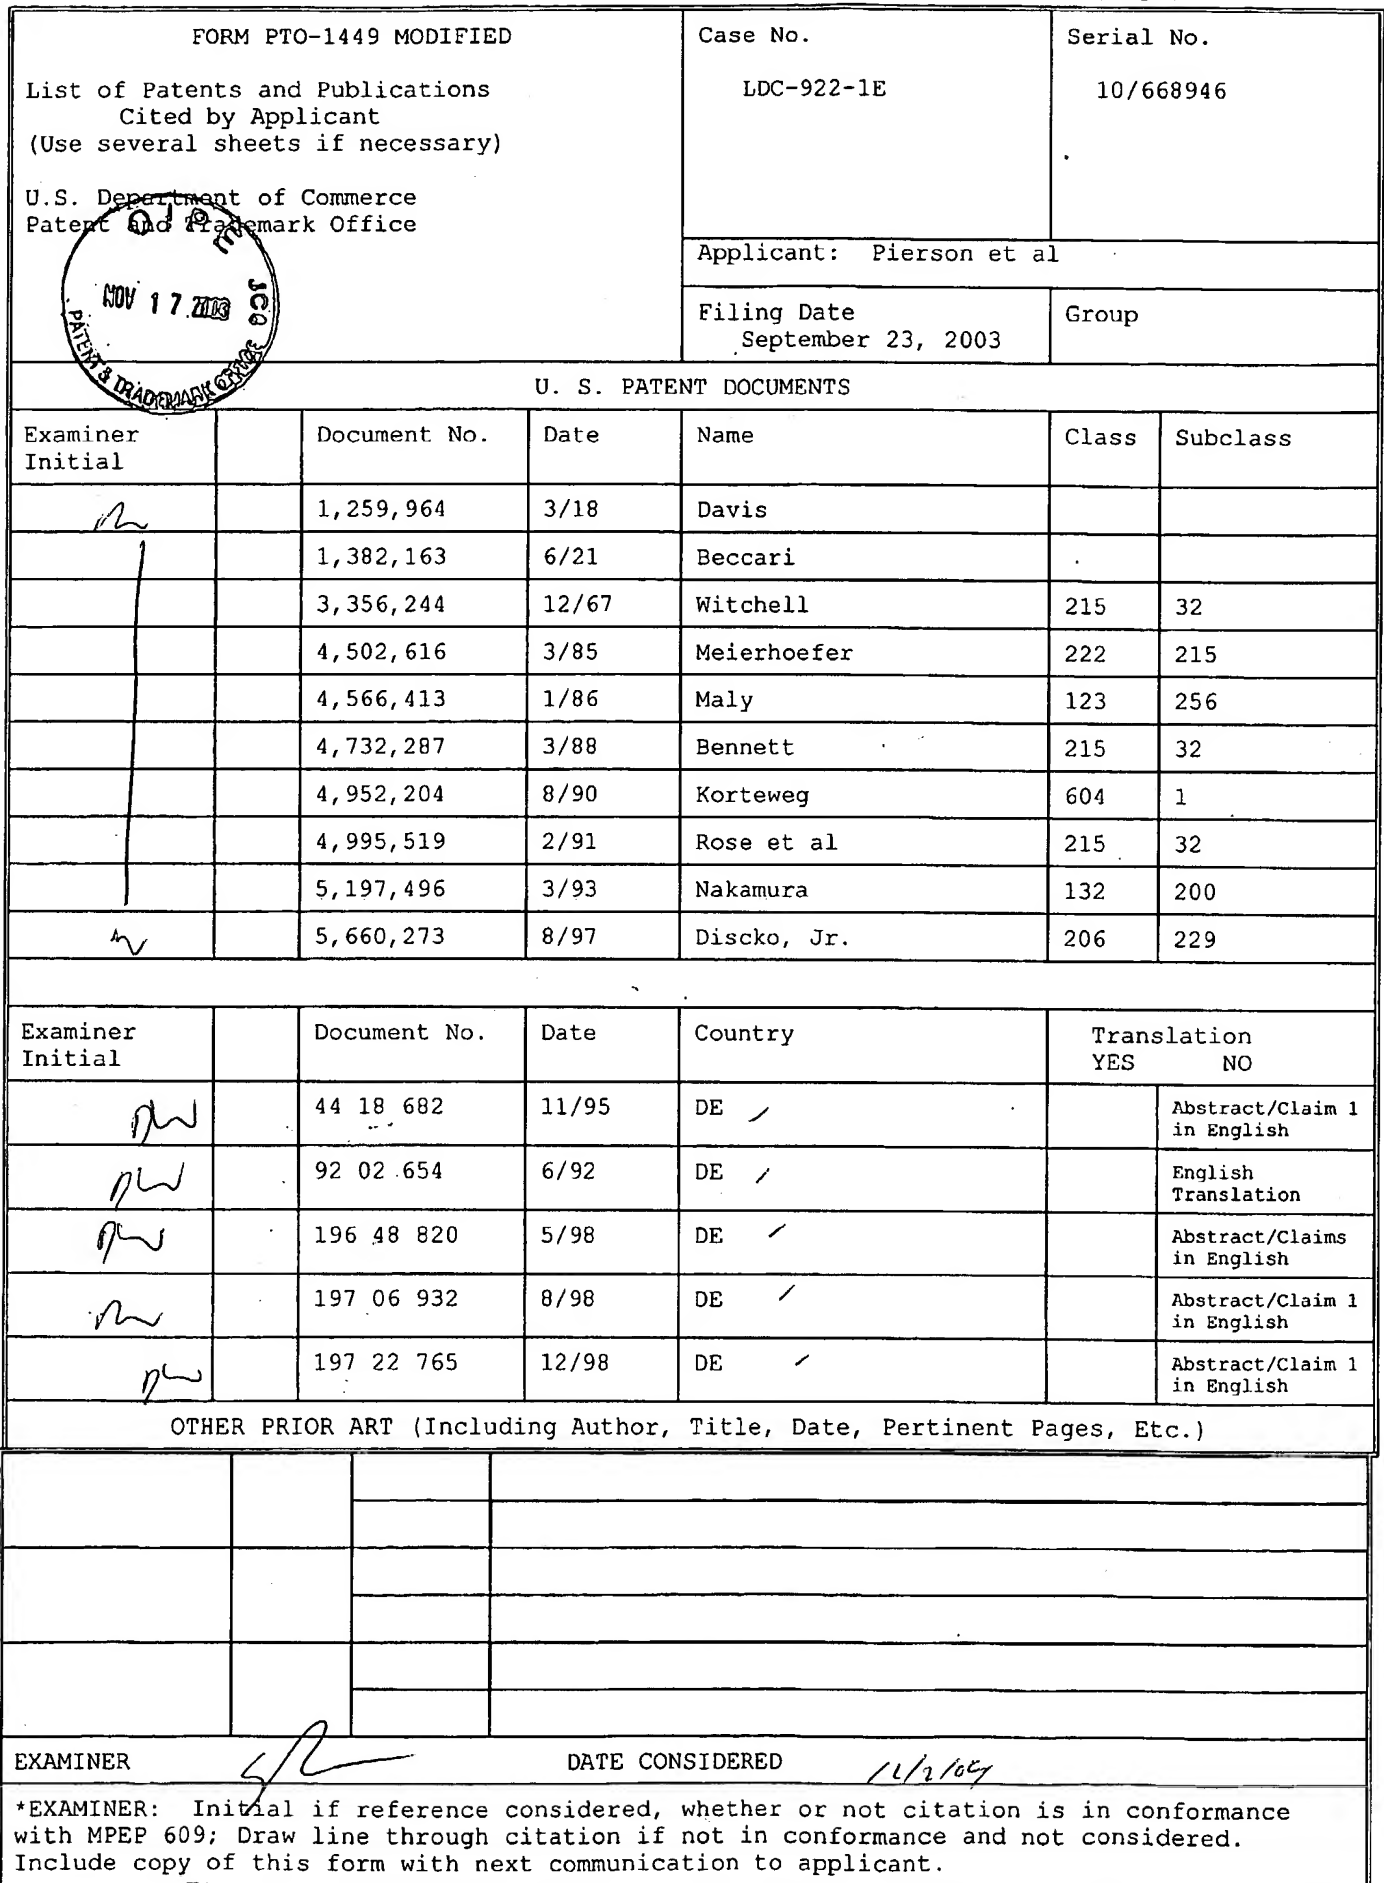 FORM PTO-1449 MODIFIED
List of Patents and Publications
Cited by Applicant
(Use several sheets if necessary)
U.S. Department of Commerce
Patent and Trademark Office
Case No.
LDC-922-1E
Serial No.
10/668946
Applicant: Pierson et al
Filing Date
September 23, 2003
Group
OIPE JC
NOV 17 2003
PATENT & TRADEMARK OFFICE
U. S. PATENT DOCUMENTS
Examiner Initial Document No. Date Name Class Subclass
1,259,964 3/18 Davis
1,382,163 6/21 Beccari
3,356,244 12/67 Witchell 215 32
4,502,616 3/85 Meierhoefer 222 215
4,566,413 1/86 Maly 123 256
4,732,287 3/88 Bennett 215 32
4,952,204 8/90 Korteweg 604 1
4,995,519 2/91 Rose et al 215 32
5,197,496 3/93 Nakamura 132 200
5,660,273 8/97 Discko, Jr. 206 229
Examiner Initial Document No. Date Country Translation
YES NO
44 18 682 11/95 DE Abstract/Claim 1
in English
92 02 654 6/92 DE English
Translation
196 48 820 5/98 DE Abstract/Claims
in English
197 06 932 8/98 DE Abstract/Claim 1
in English
197 22 765 12/98 DE Abstract/Claim 1
in English
OTHER PRIOR ART (Including Author, Title, Date, Pertinent Pages, Etc.)
EXAMINER DATE CONSIDERED
*EXAMINER: Initial if reference considered, whether or not citation is in conformance
with MPEP 609; Draw line through citation if not in conformance and not considered.
Include copy of this form with next communication to applicant.